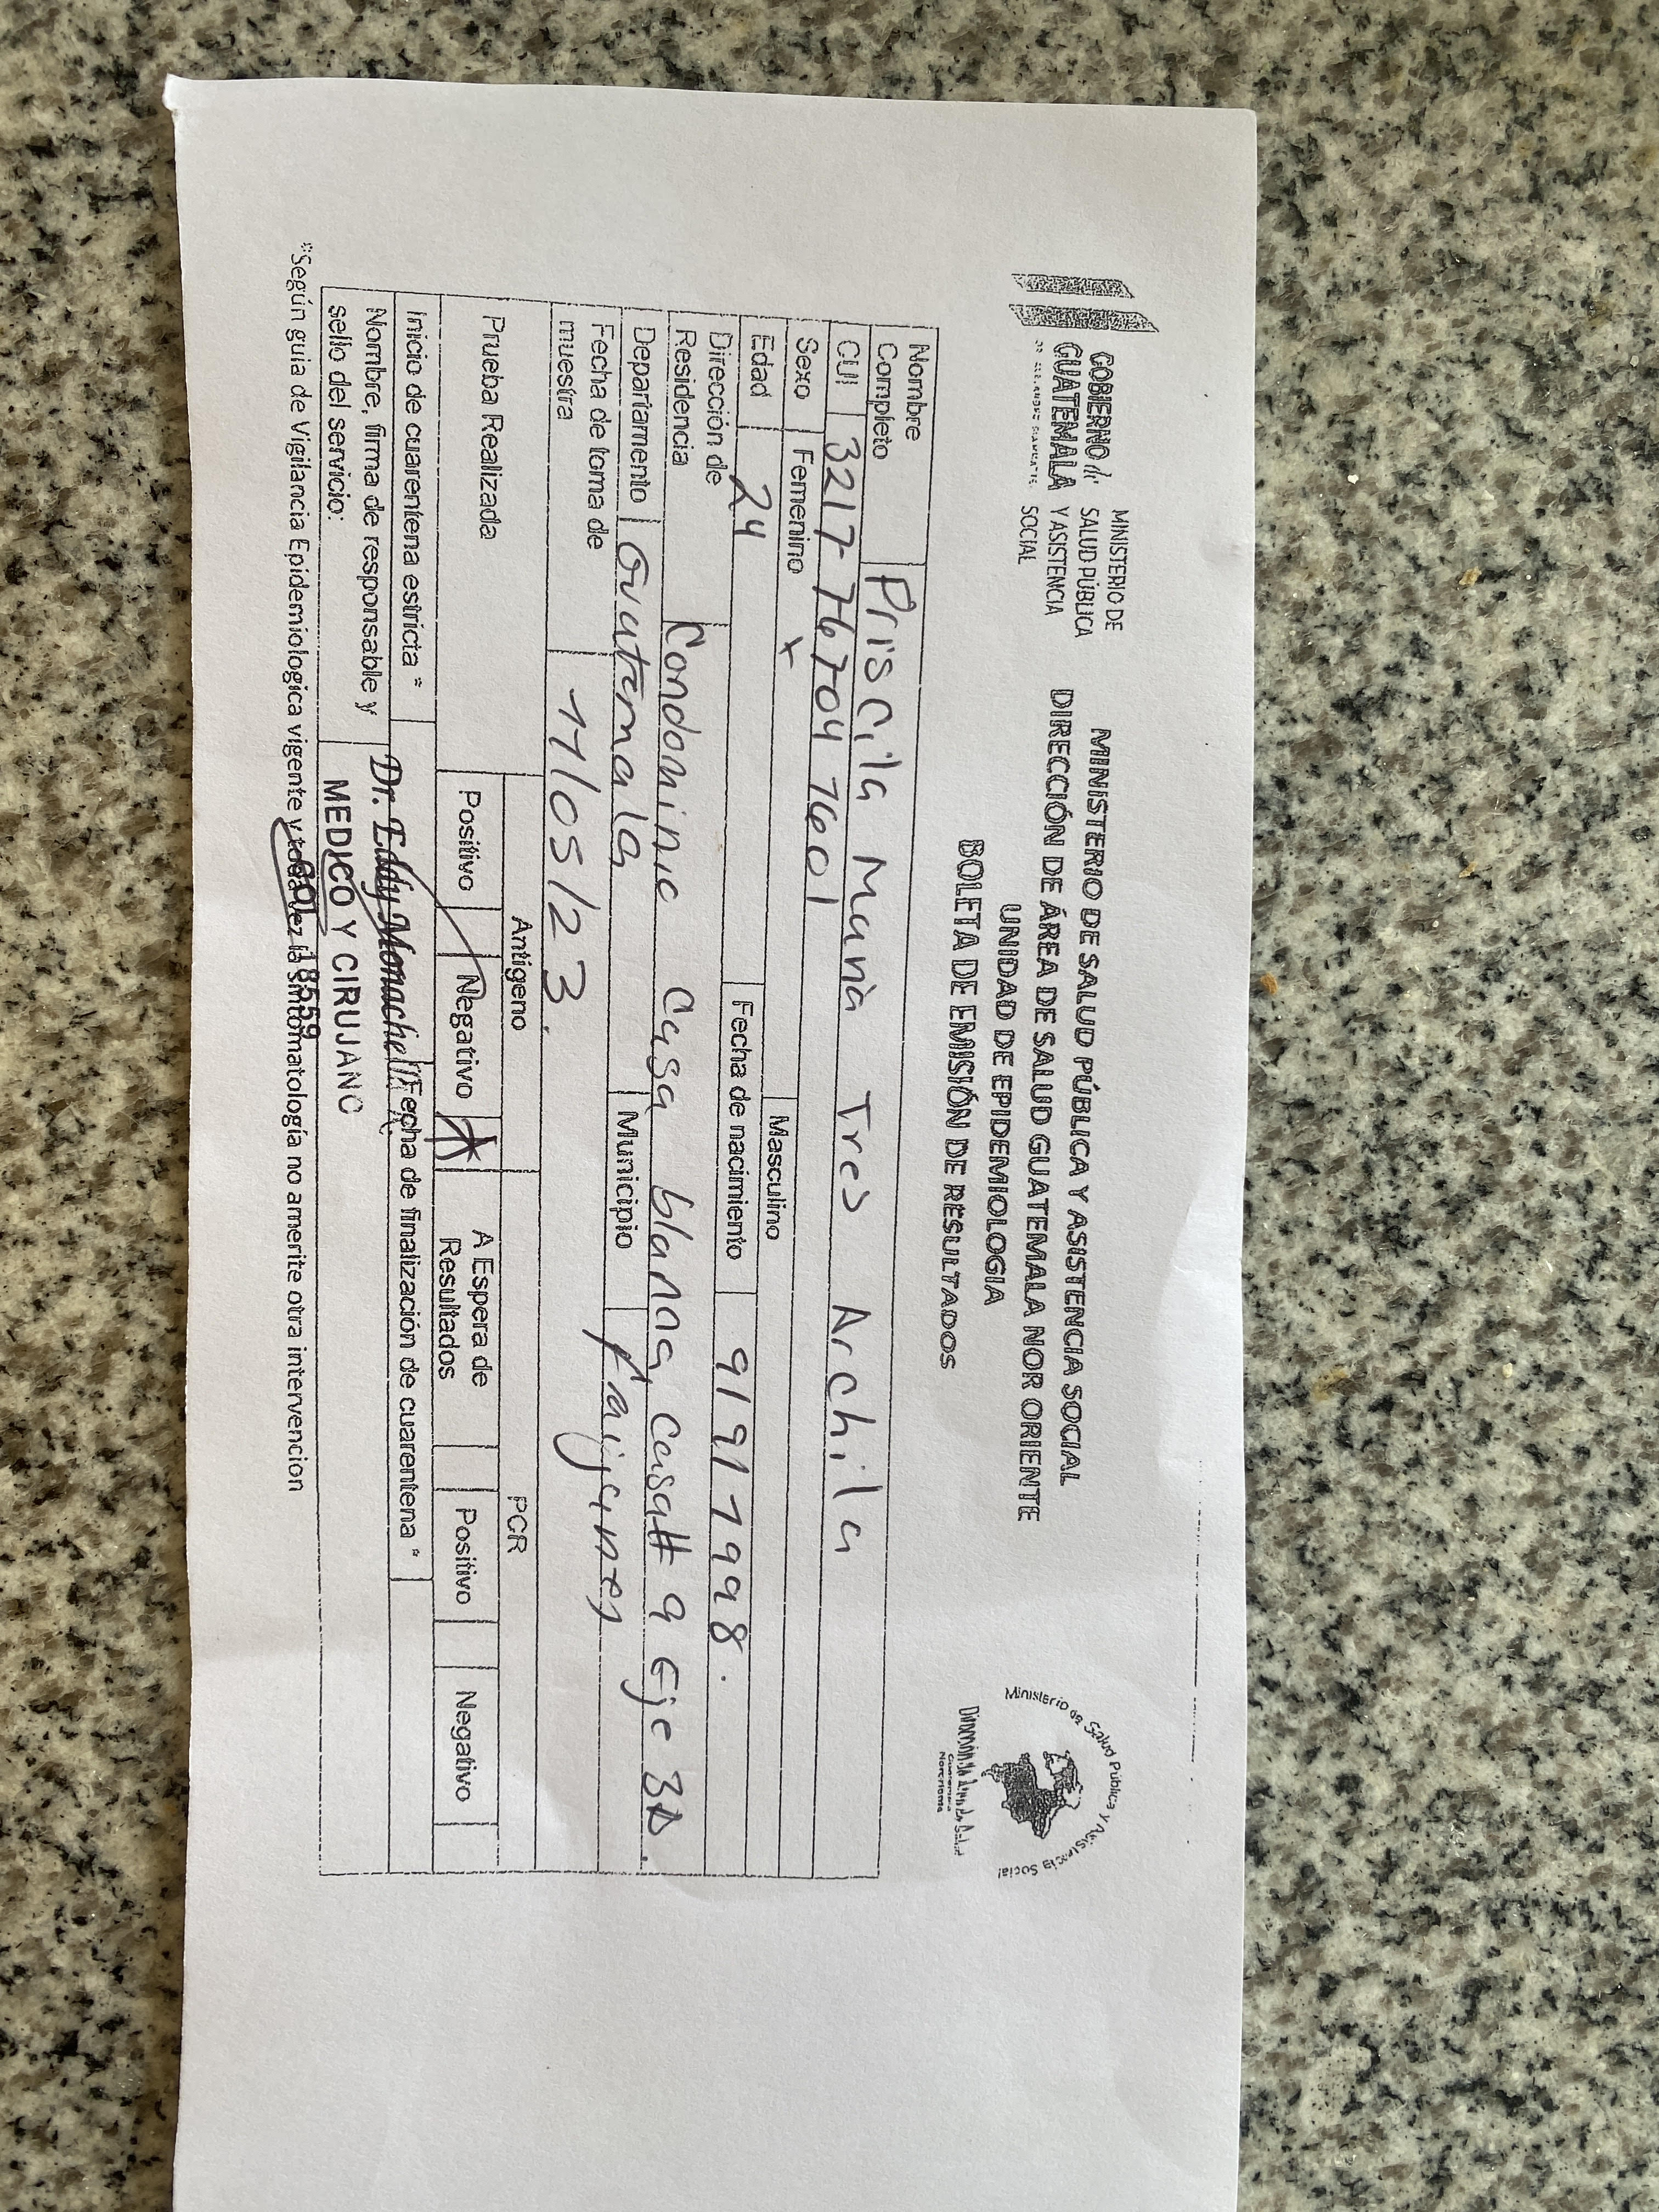 GOBIERNO de
GUATEMALA
MINISTERIO DE
SALUD PÚBLICA
Y ASISTENCIA
SOCIAL
MINISTERIO DE SALUD PÚBLICA Y ASISTENCIA SOCIAL
DIRECCIÓN DE ÁREA DE SALUD GUATEMALA NOR ORIENTE
UNIDAD DE EPIDEMIOLOGIA
BOLETA DE EMISIÓN DE RESULTADOS
Ministerio de Salud Pública y Asistencia Social
Guatemala
Nororiente
Nombre Completo Priscila María Tres Archila
CUI 3217 76704 7601
Sexo Femenino x Masculino
Edad 24 Fecha de nacimiento 9/9/1998.
Dirección de Residencia Condominio Casa blanca, casa# 9 Eje 3D.
Departamento Guatemala Municipio Fraijanes
Fecha de toma de muestra 11/05/23.
Prueba Realizada
Antigeno PCR
Positivo Negativo X A Espera de Resultados Positivo Negativo
Inicio de cuarentena estricta * Fecha de finalización de cuarentena *
Nombre, firma de responsable y
sello del servicio:
Dr. Eddy
MEDICO Y CIRUJANO
COL. 18559
*Según guia de Vigilancia Epidemiologica vigente y toda vez la sintomatología no amerite otra intervencion